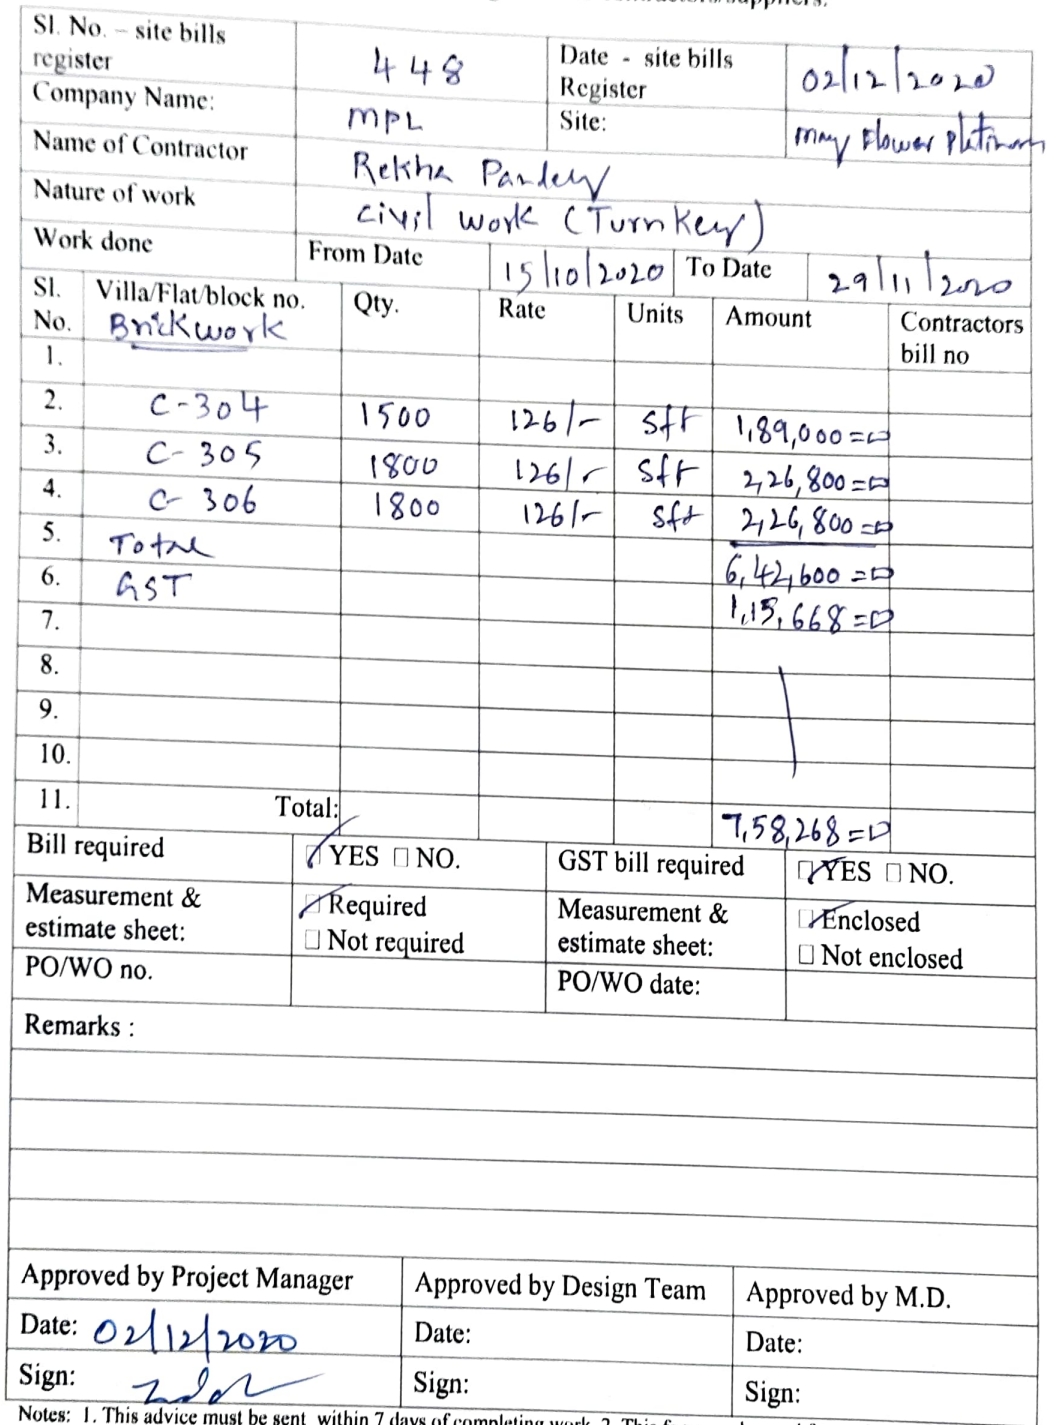 Sl. No. – site bills register 448 Date - site bills Register 02/12/2020
Company Name: MPL Site: May Flower Platinum
Name of Contractor Rekha Pandey
Nature of work Civil work (Turnkey)
Work done From Date 15/10/2020 To Date 29/11/2020
Sl. No. Villa/Flat/block no. Qty. Rate Units Amount Contractors bill no
Brickwork
1.
2. C-304 1500 126/- Sft 1,89,000=00
3. C-305 1800 126/- Sft 2,26,800=00
4. C-306 1800 126/- Sft 2,26,800=00
5. Total 6,42,600=00
6. GST 1,15,668=00
7.
8.
9.
10.
11. Total: 7,58,268=00
Bill required YES NO. GST bill required YES NO.
Measurement & estimate sheet: Required Not required Measurement & estimate sheet: Enclosed Not enclosed
PO/WO no. PO/WO date:
Remarks :
Approved by Project Manager Approved by Design Team Approved by M.D.
Date: 02/12/2020 Date: Date:
Sign: Sign: Sign:
Notes: 1. This advice must be sent within 7 days of completing work. 2. This